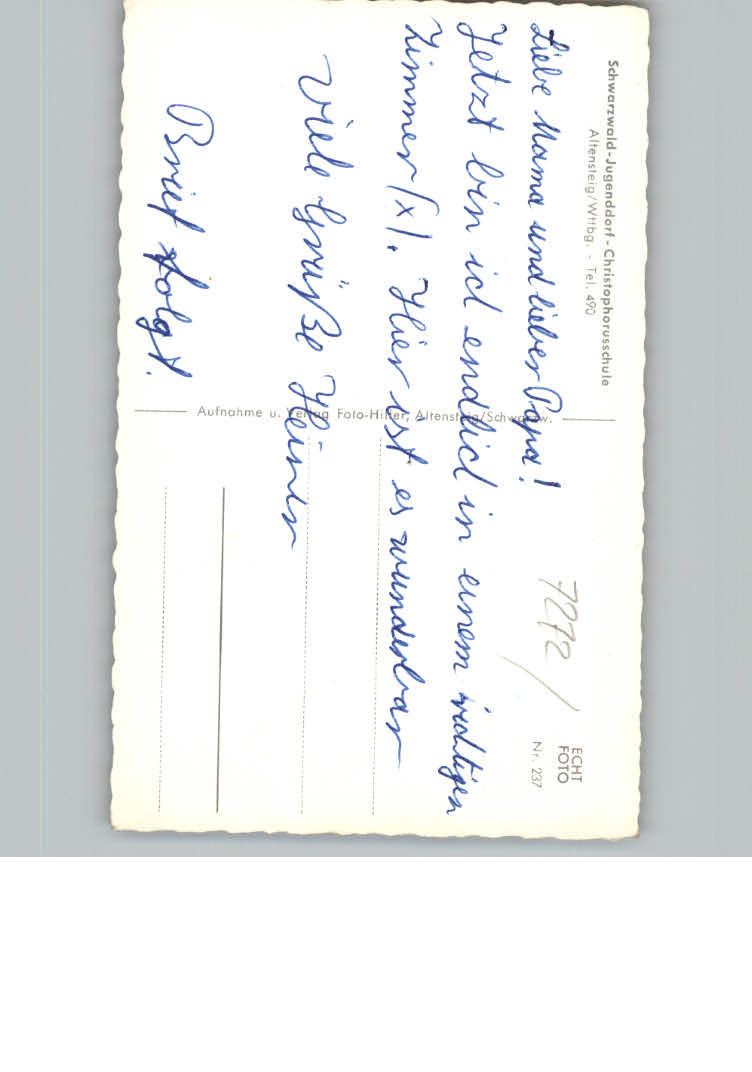 Schwarzwald-Jugenddorf - Christophorusschule
Altensteig/Wttbg. - Tel. 490
Liebe Mama und lieber Papa!
Jetzt bin ich endlich in einem richtigen
Zimmer (x). Hier ist es wunderbar
Viele Grüße Heiner
Brief folgt!
Aufnahme u. Verlag Foto-Hiller, Altensteig/Schwarzw.
7272/
ECHT
FOTO
Nr. 237